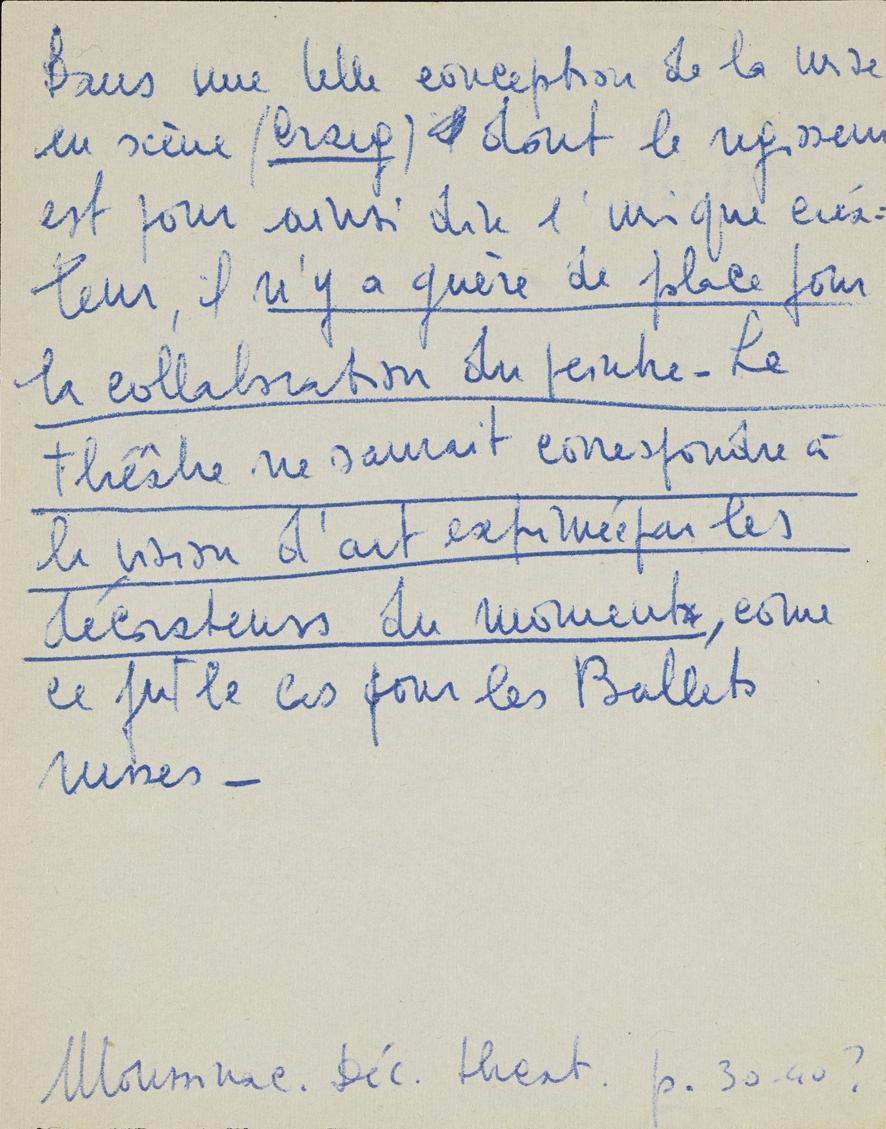 Dans une telle conception de la mise
en scène (Craig) dont le régisseur
est pour ainsi dire l'unique créa=
teur, il n'y a guère de place pour
la collaboration du peintre - Le
théâtre ne saurait correspondre à
la vision d'art expriméepar les
décorateurs du moment, come
ce fut le cas pour les Ballets
russes -
Moussinac. Déc. theat. p. 30-40?